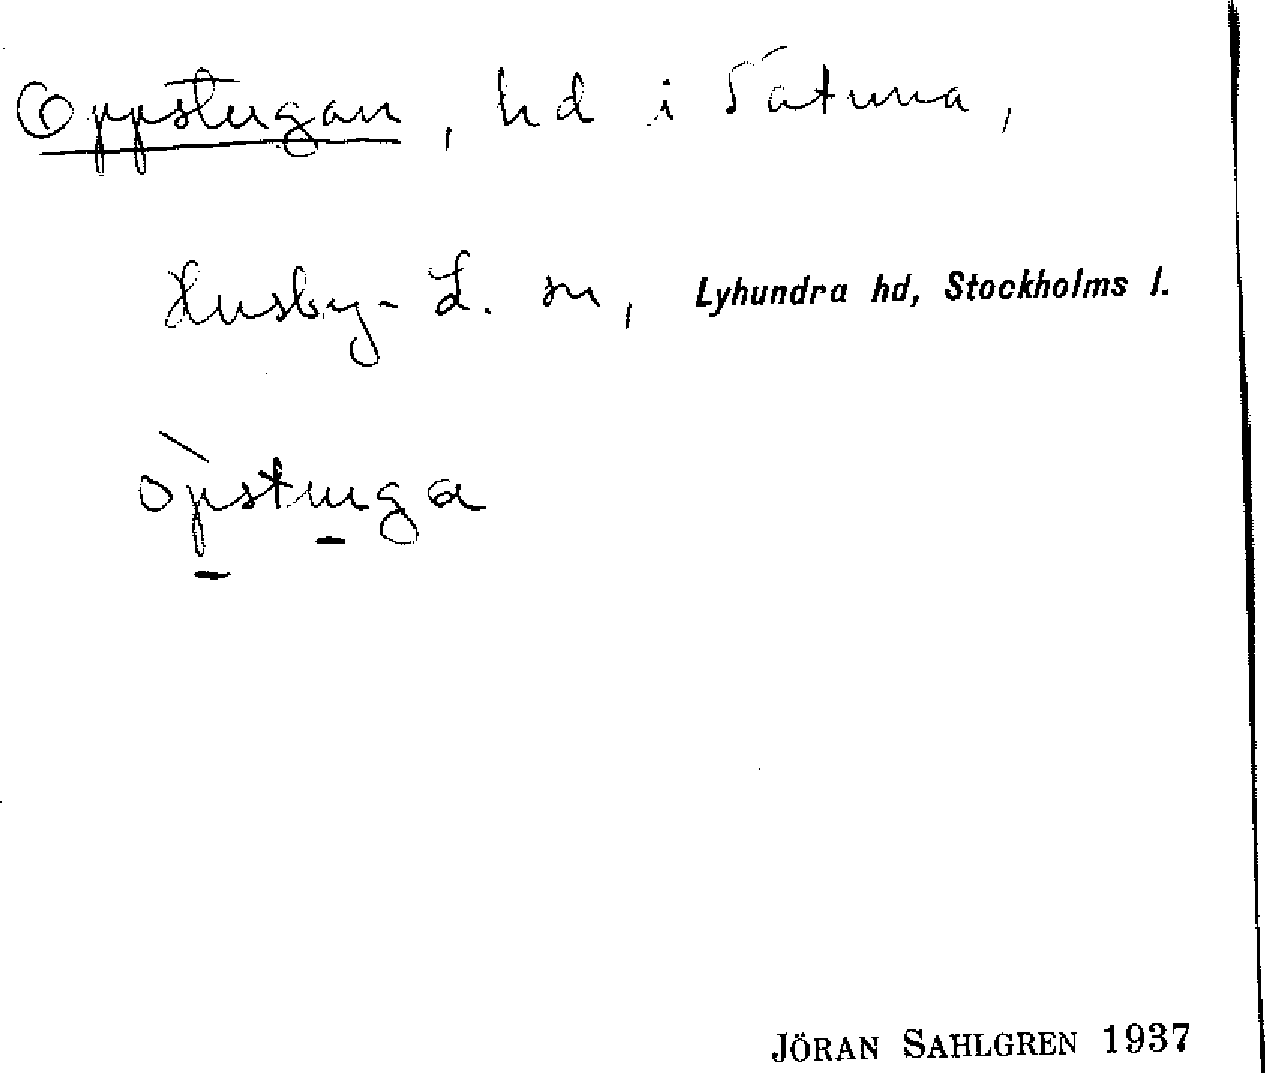 Oppstugan, hd i Satuna,
Husby-L. sn, Lyhundra hd, Stockholms l.
òpstuga
JÖRAN SAHLGREN 1937